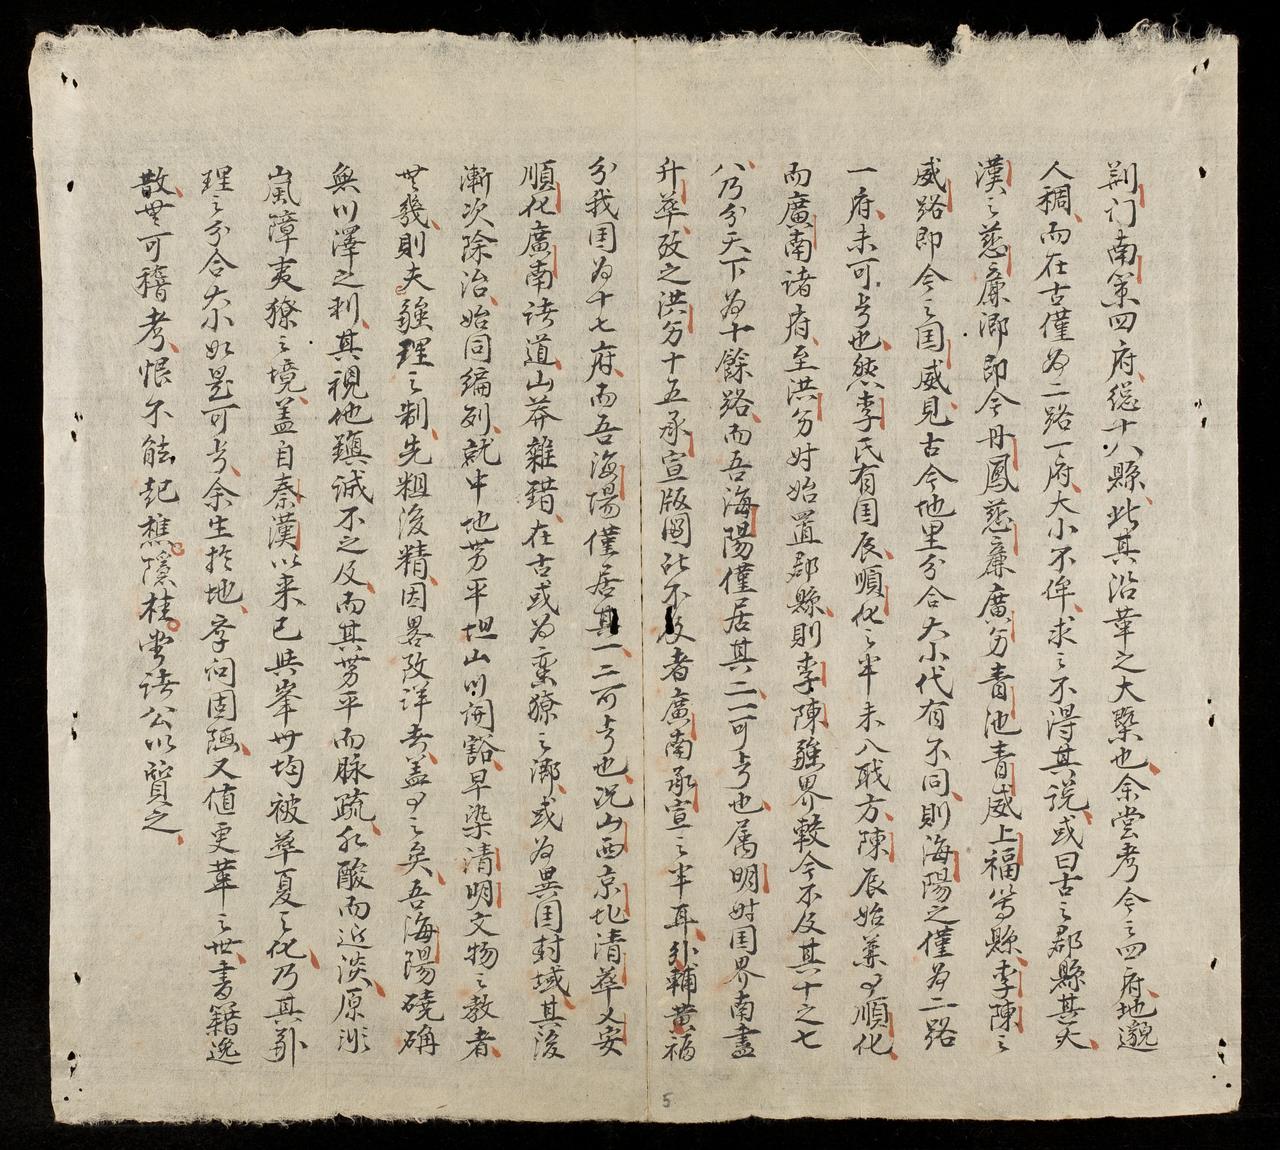 荆门南策四府縂十八縣此其沿革之大槩也余嘗考今之四府地邈
人稠而在古僅为二路一府大小不侔求之不得其説或曰古之郡縣甚大
漢之慈廉鄉即今丹鳳慈廉廣另青池青威上福等縣李陳之
威路即今之国威見古今地里分合大小代有不同則海陽之僅为二路
一府未可考也然李氏有国辰順化之半未入職方陳辰始兼有順化
而廣南诸府至洪另时始置郡縣則李陳疆界較今不及其十之七
八乃分天下为十餘路而吾海陽僅居其二可考也属明时国界南盡
升華攺之洪另十五承宣版圖所不及者廣南承宣之半耳外輔黄福
分我国为十七府而吾海陽僅居其一二可考也况山西京北清華乂安
順化廣南诸道山莽雜错在古或为蛮獠之鄉或为異国封域其後
漸次除治始同编列就中地势平坦山川開豁早染清明文物之教者
世幾則夫疆理之制先粗後精因畧攺详者盖有之矣吾海陽磽确
無川澤之利其視他鎮诚不之及而其势平而脉疏水酸而近淡原非
嵐障夷獠之境盖自秦漢以来已與峯州均被華夏之化乃其疆
理之分合大小如是可考余生於地李问固陋又值更革之世書籍逸
散世可稽考恨不能起樵隱桂堂诸公以質之